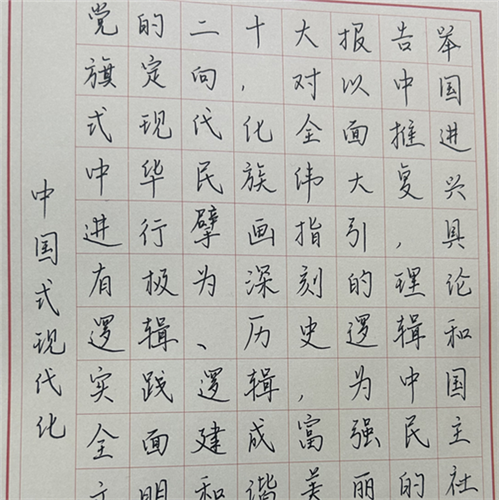 中国式现代化
党的二十大报告举
旗定向，对以中国
式现代化全面推进
中华民族伟大复兴
进行擘画指引，具
有极为深刻的理论
逻辑、历史逻辑和
实践逻辑，为中国
全面建成富强民主
文明和谐美丽的社